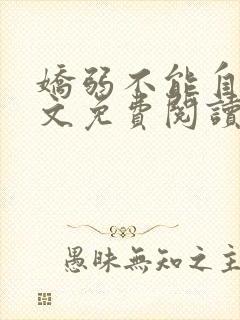 嬌弱不能自
文免費閱讀
愚昧無知之主